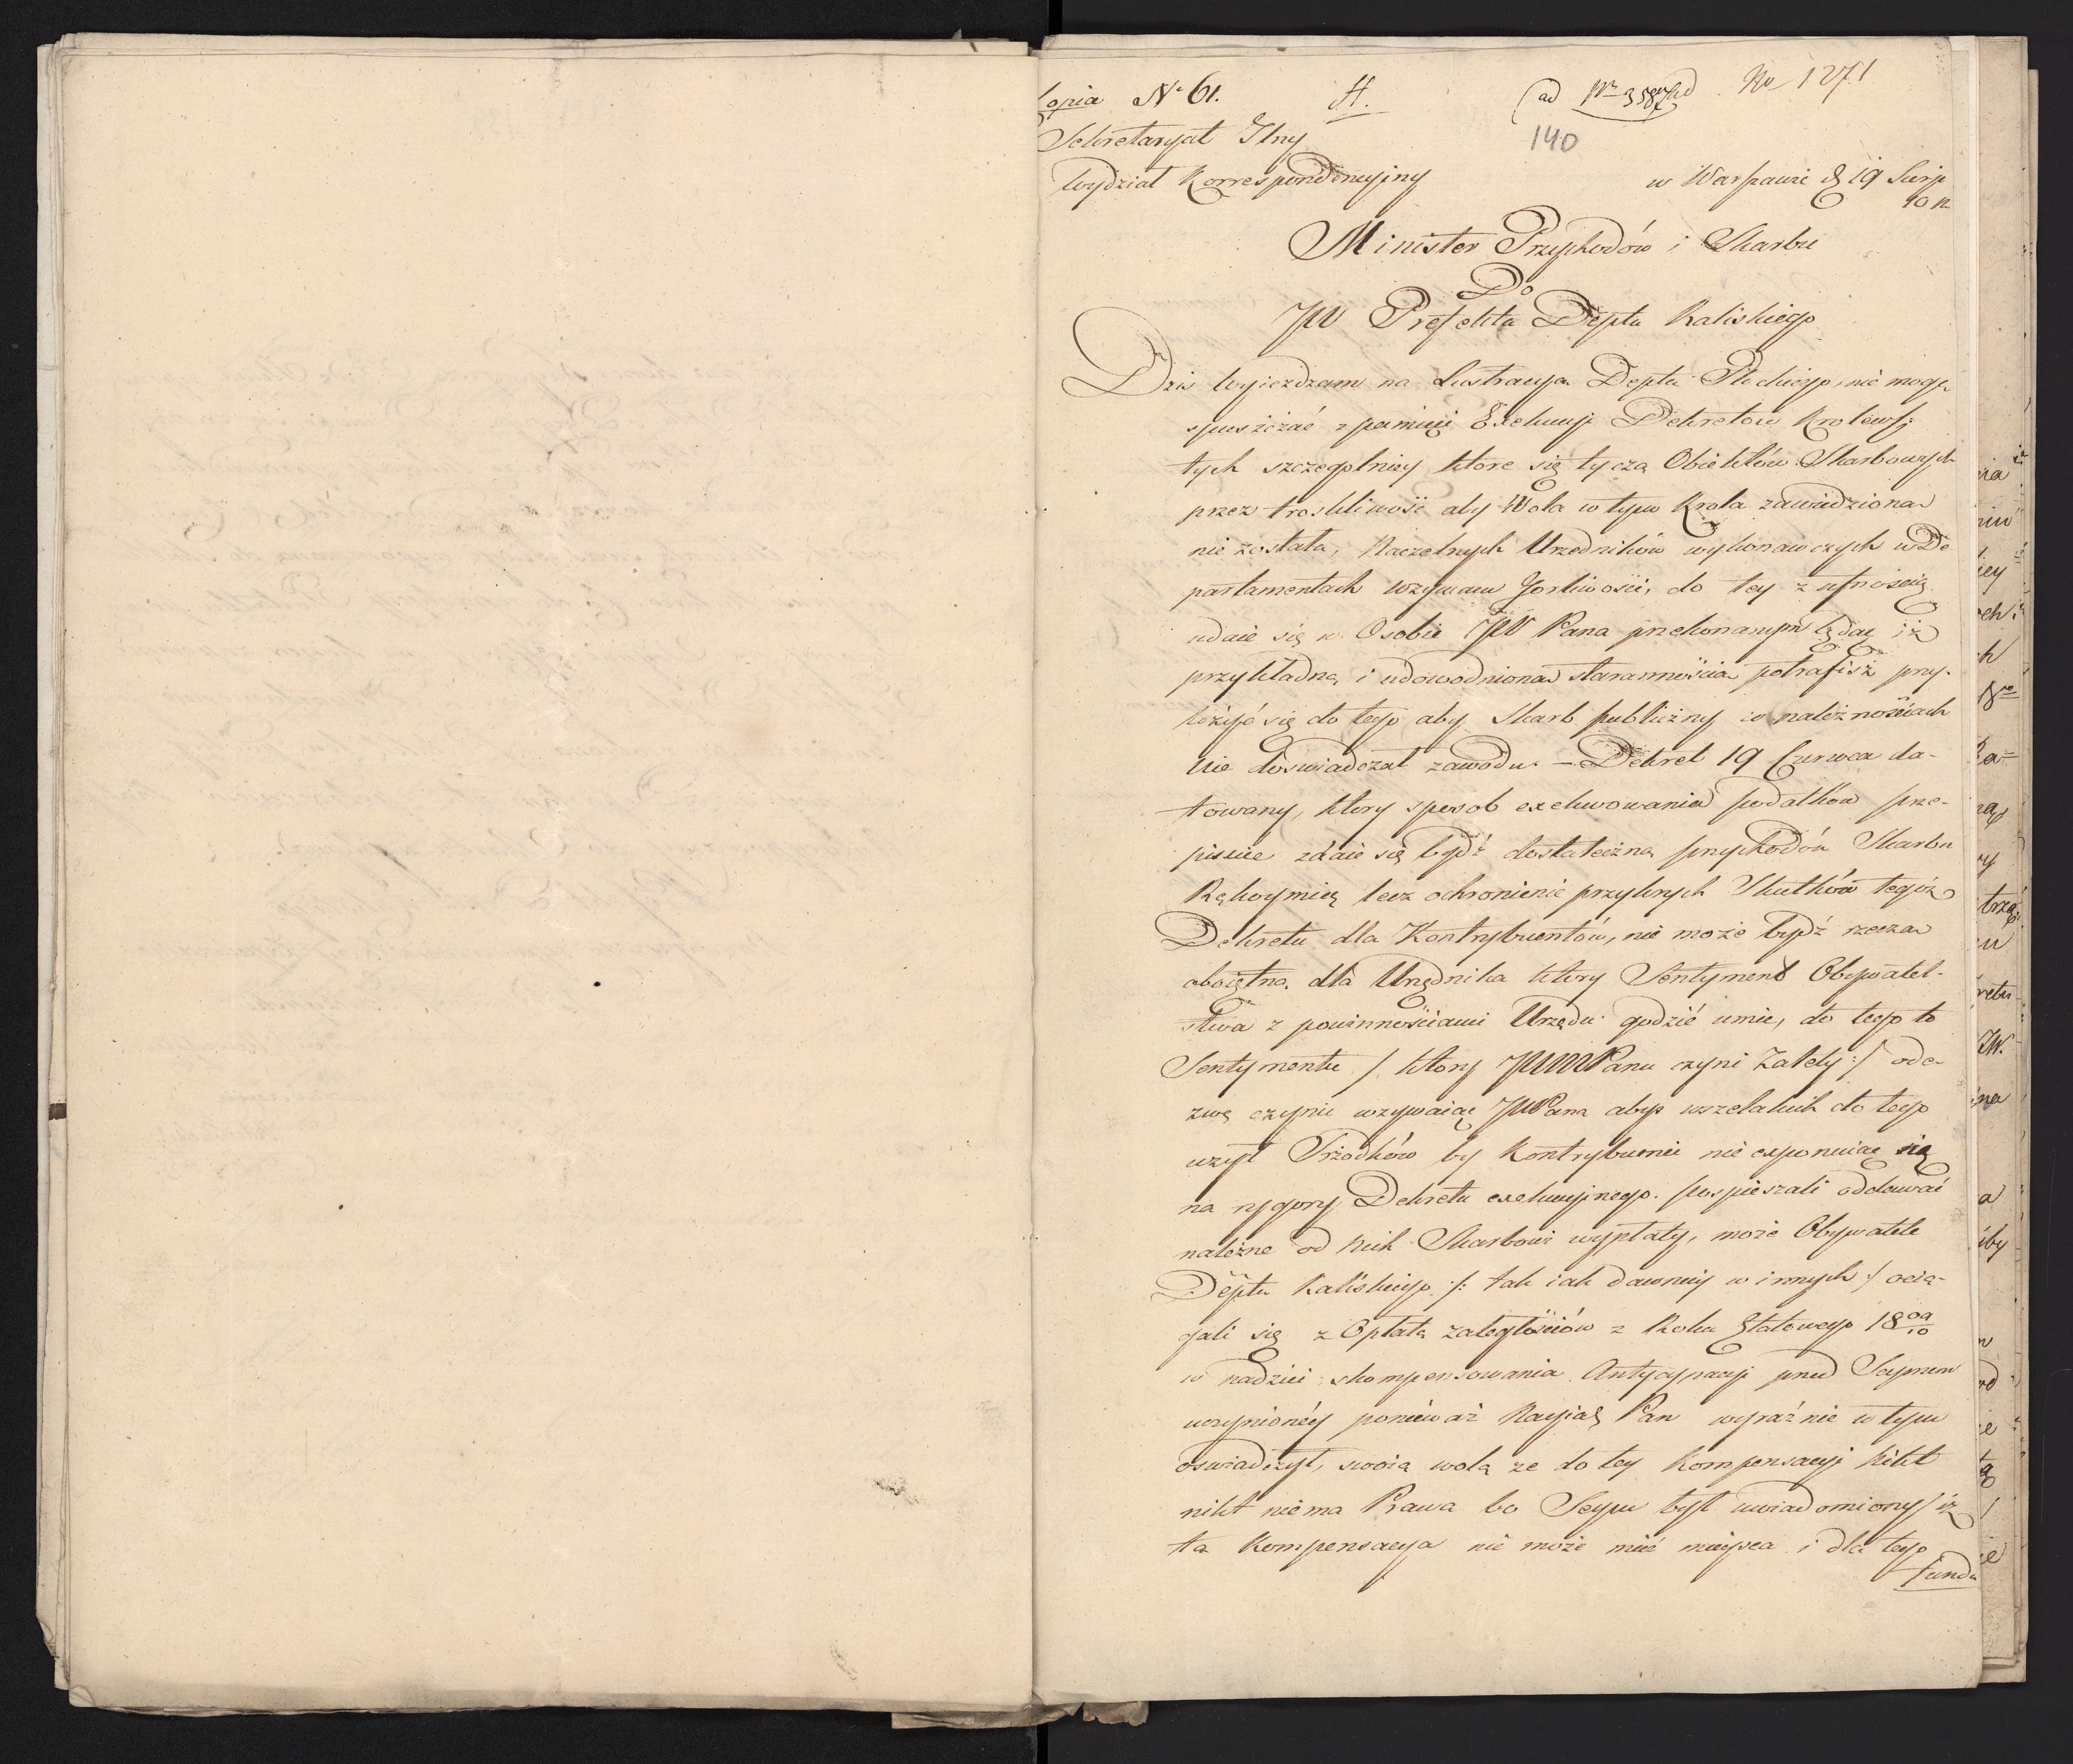 Kopia N° 61. A. (ad No 1271
140
Sekretaryat Jlny
Wydział Korrespondencyiny w Warszawie d 19 Sierp
Minister Przychodów i Skarbu
Do
JW Prefekta Deptu Kaliskiego
Dzis wyieżdzam na Lustracyą Deptu Płockiego, nie mogę
spuszczać z pamięci Exekucyi Dekretow Krolews:
tych szczegolniey ktore się tyczą Obiektów Skarbowych
przez troskliwość aby Wola w tym Krola zawiedziona
nie została, Naczelnych Urzedników wykonawczych w De
partamentach wzywam Gorliwości, do tey z ufnością
udaie się w Osobie JW Pana przekonanym będąc iż
przykładną i udowodnioną starannościa potrafisz przy-
łożyć się do tego aby Skarb publiczny w należnościach
nie doświadczał zawodu. — Dekret 19 Czerwca da-
towany, ktory sposob exekwowania podatków prze-
pisuie zdaie się bydź dostateczną przychodów Skarbu
Rękoymią lecz ochronienie przykrych Skutków tegoż
Dekretu dla Kontrybuentów, nie może bydź rzeczą
oboiętną dla Urzędnika ktory Sentyment Obywatel-
stwa z powinnościami Urzędu godzić umie, do tego to
Sentymentu /: ktory JWWPanu czyni Zalety :/ ode-
zwę czynie wzywaiąc JWPana abyś wszelakich do tego
użył Srzodków by Kontrybuenci nie exponuiąc się
na rygory Dekretu exekucyjnego. pospieszali oddawać
należne od nich Skarbowi wypłaty, może Obywatele
Deptu Kaliskiego /: tak iak dawniey w innych :/ ocią-
gali się z Opłatą zaległościów z Roku Etatowego 18 09/10
w nadziei skompensowania Antycypacyi przed Seymem
uczynioney ponieważ Nayiaś Pan wyraźnie w tym
oswiadczył, swoią wolą ze do tey Kompensacyi Nikt
nikt niema Prawa bo Seym był uwiadomiony iż
ta Kompensacya nie może mieć mieysca i dla tego
fundu